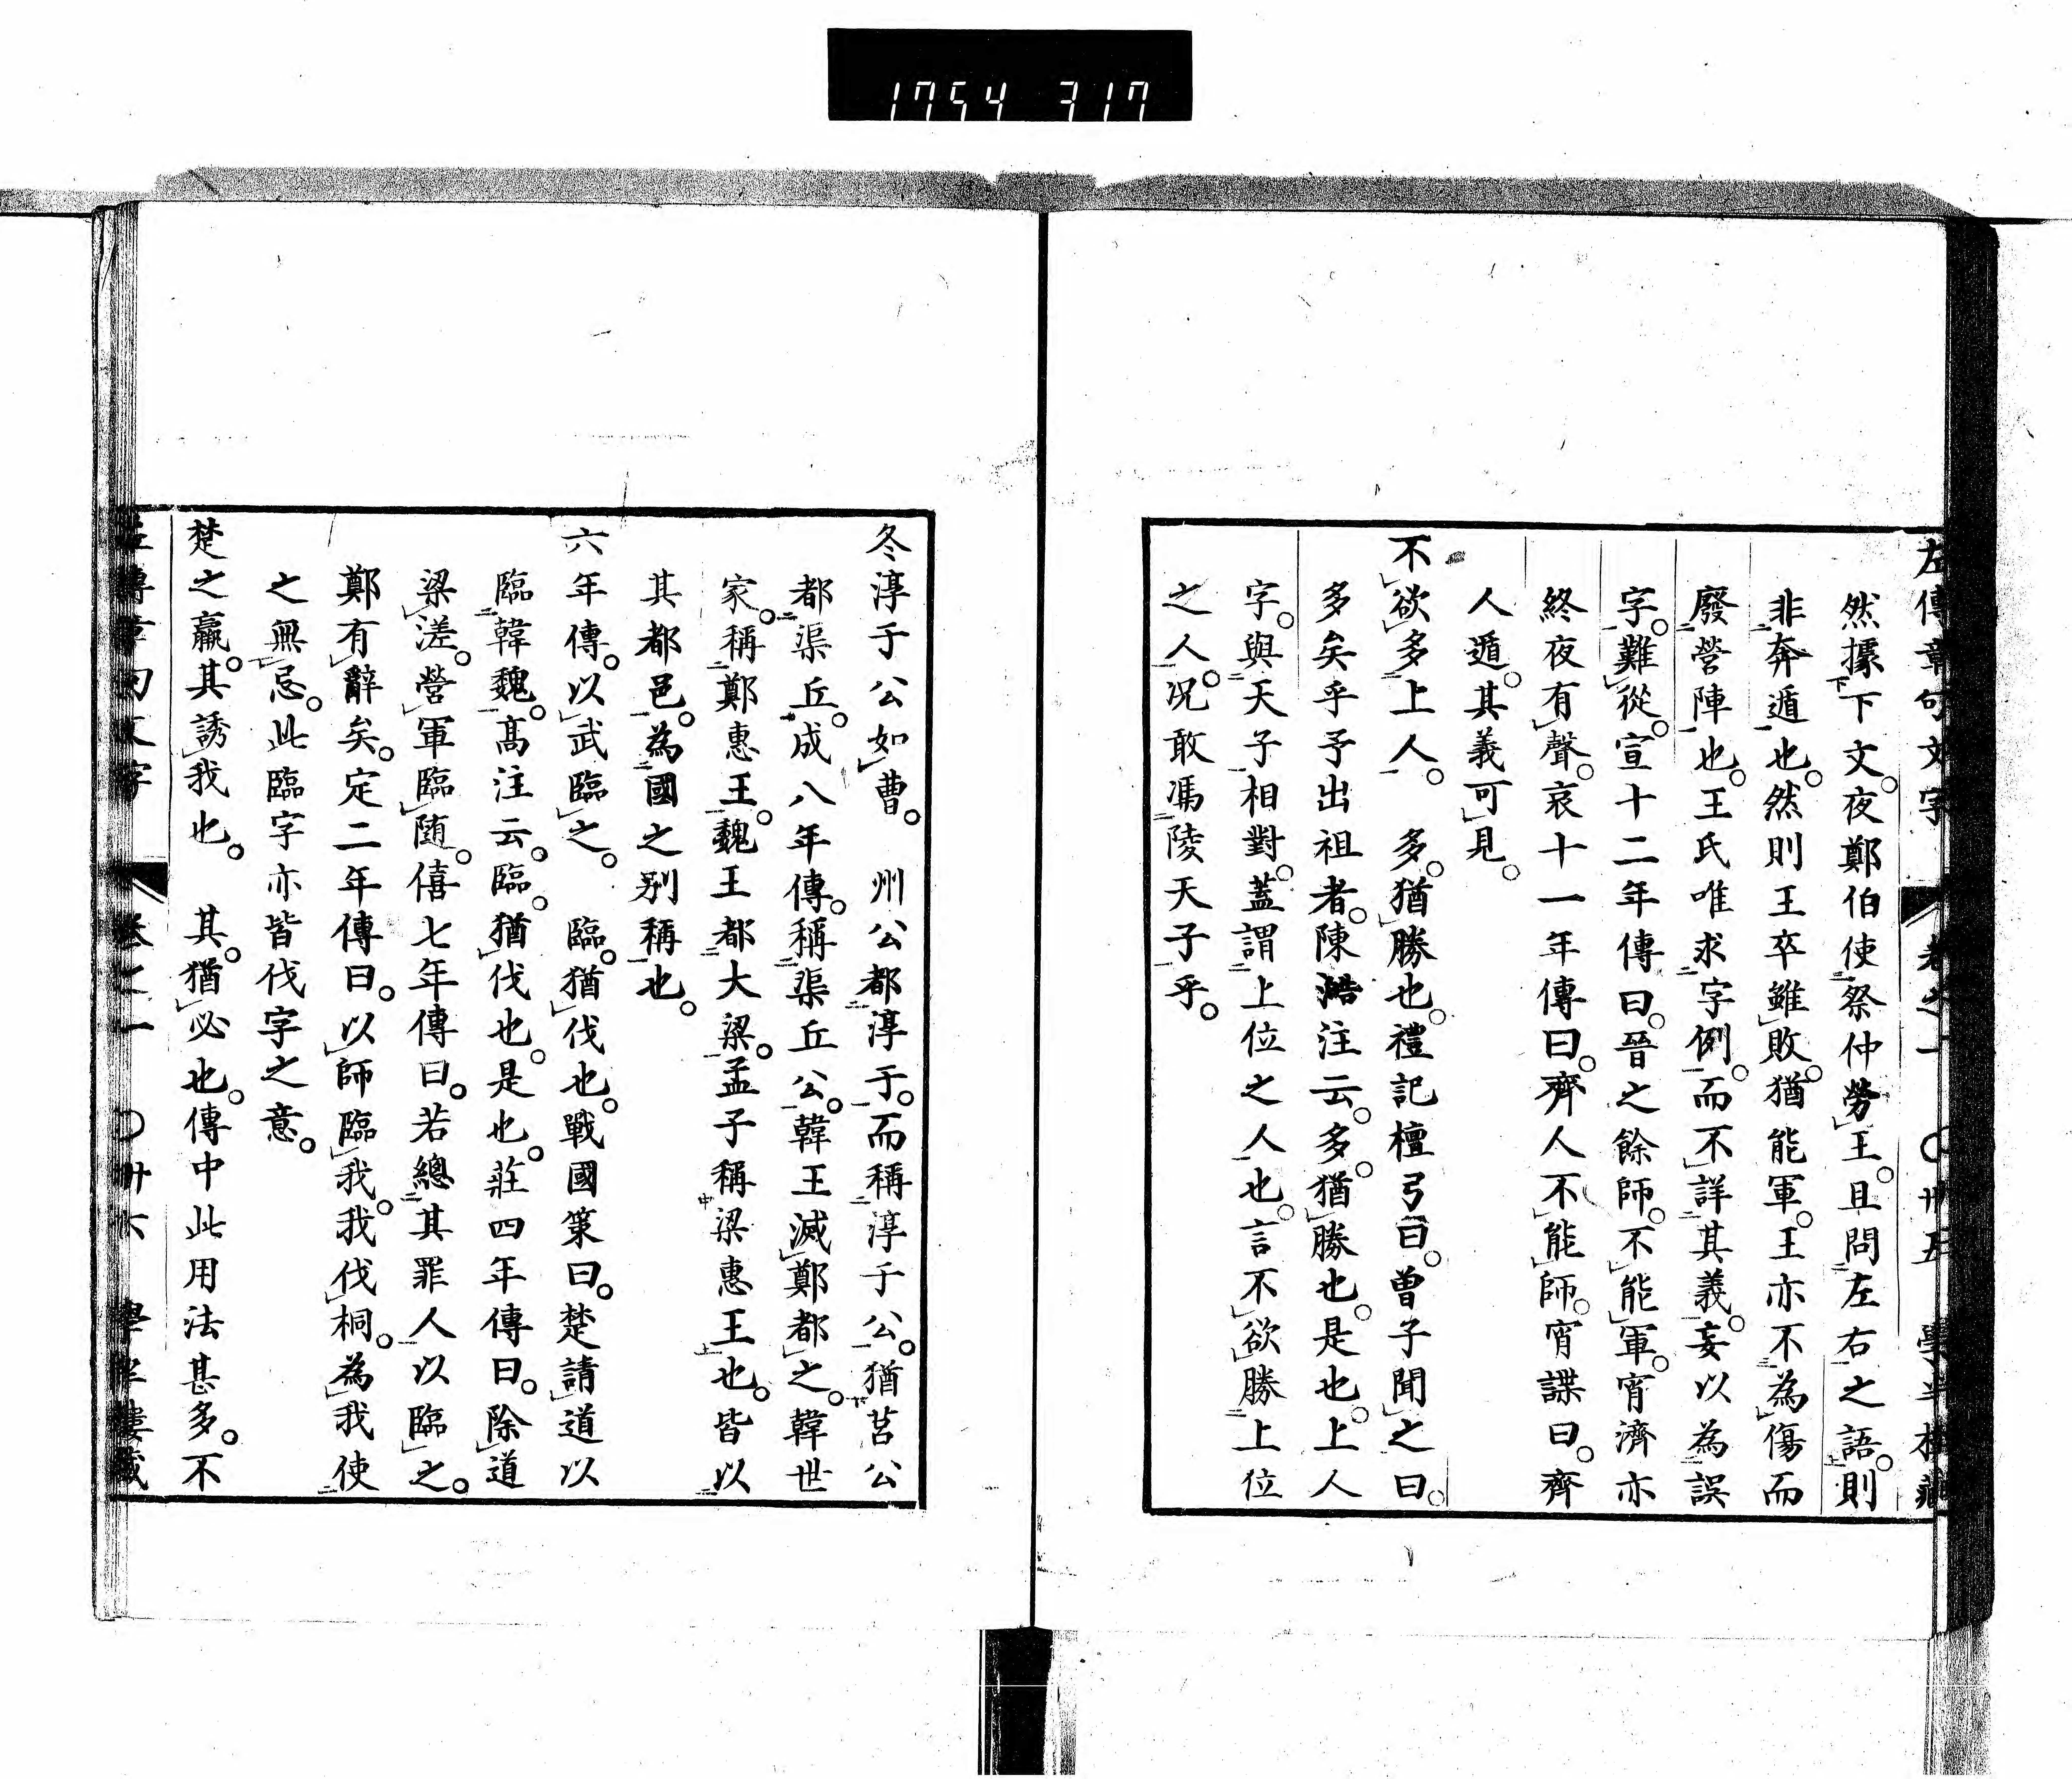 1754 317
左傳章句文字 卷之一 〇卅五 學半樓藏
然據下文。夜鄭伯使祭仲勞王。且問左右之語。則
非奔遁也。然則王卒雖敗。猶能軍。王亦不為傷而
廢營陣也。王氏唯求字例。而不詳其義。妄以為誤
字。難從。宣十二年傳曰。晉之餘師。不能軍。宵濟亦
終夜有聲。哀十一年傳曰。齊人不能師。宵諜曰。齊
人遁。其義可見。
不欲多上人。 多。猶勝也。禮記檀弓曰。曽子聞之曰。
多矣乎予出祖者。陳澔注云。多。猶勝也。是也。上人
字。與天子相對。蓋謂上位之人也。言不欲勝上位
之人。况敢馮陵天子乎。
冬淳于公如曹。 州公都淳于。而稱淳于公。猶莒公
都渠丘。成八年傳。稱渠丘公。韓王滅鄭都之。韓世
家。稱鄭惠王。魏王都大梁。孟子稱梁惠王也。皆以
其都邑。為國之别稱也。
六年傳。以武臨之。 臨。猶伐也。戰國策曰。楚請道以
臨韓魏。髙注云。臨。猶伐也。是也。莊四年傳曰。除道
梁溠。營軍臨随。僖七年傳曰。若總其罪人以臨之。
鄭有辭矣。定二年傳曰。以師臨我。我伐桐。為我使
之無忌。此臨字亦皆伐字之意。
楚之羸。其誘我也。 其。猶必也。傳中此用法甚多。不
左傳章句文字 卷之一 〇卅六 學半樓藏